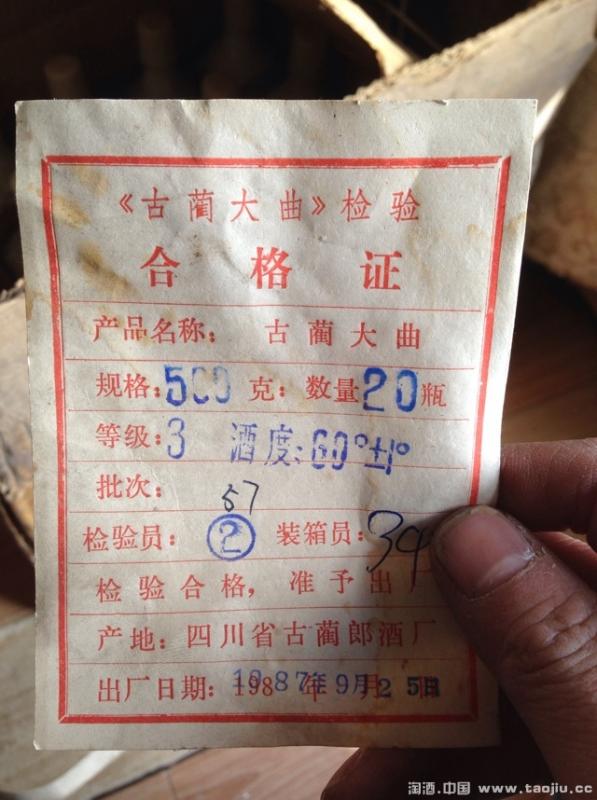 《古蔺大曲》检验
合格证
产品名称：古蔺大曲
规格：500克：数量20瓶
等级：3 酒度：60°±1°
批次：57
检验员：② 装箱员：
检验合格，准予出厂
产地：四川省古蔺郎酒厂
出厂日期：1987年9月25日
淘酒.中国 www.taojiu.cc